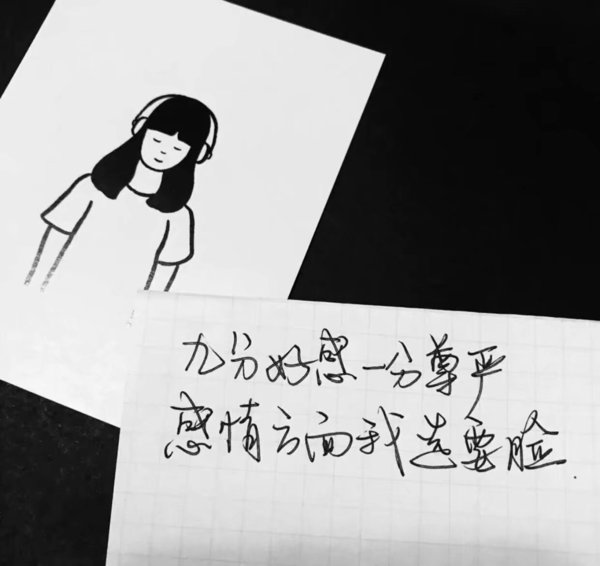 九分好感一分尊严
感情方面我选要脸.